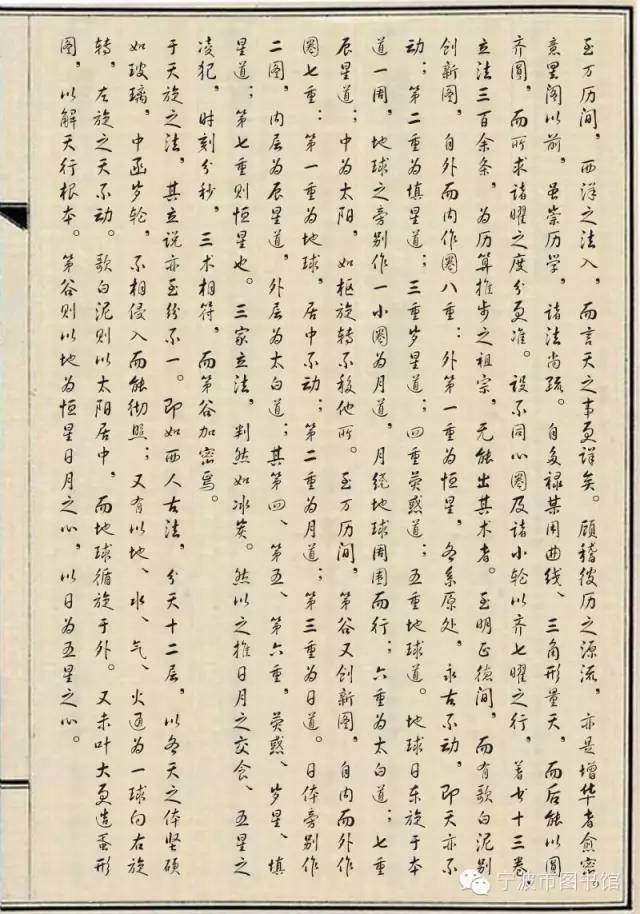 至万历间，西洋之法入，而言天之事更详矣。顾稽彼历之源流，亦是增华者愈密。
意罡阁以前，虽崇历学，诸法尚疏。自多禄某用曲线、三角形量天，而后能以圆
齐圆，而所求诸曜之度分更准。设不同心圈及诸小轮以齐七曜之行，著书十三卷，
立法三百余条，为历算推步之祖宗，无能出其术者。至明正德间，而有歌白泥别
创新图，自外而内作圈八重：外第一重为恒星，各系原处，永古不动，即天亦不
动；第二重为填星道；三重岁星道；四重荧惑道；五重地球道。地球日东旋于本
道一周，地球之旁别作一小圈为月道，月绕地球周围而行；六重为太白道；七重
辰星道；中为太阳，如枢旋转不移他所。至万历间，第谷又创新图，自内而外作
圈七重：第一重为地球，居中不动；第二重为月道；第三重为日道。日体旁别作
二圈，内层为辰星道，外层为太白道；其第四、第五、第六重，荧惑、岁星、填
星道；第七重则恒星也。三家立法，判然如冰炭。然以之推日月之交食、五星之
凌犯，时刻分秒，三术相符，而第谷加密焉。
于天旋之法，其立说亦至纷不一。即如西人古法，分天十二层，以各天之体坚硕
如玻璃，中函岁轮，不相侵入而能彻照；又有以地、水、气、火通为一球向右旋
转，左旋之天不动。歌白泥则以太阳居中，而地球循旋于外。又未叶大更造蛋形
图，以解天行根本。第谷则以地为恒星日月之心，以日为五星之心。
宁波市图书馆